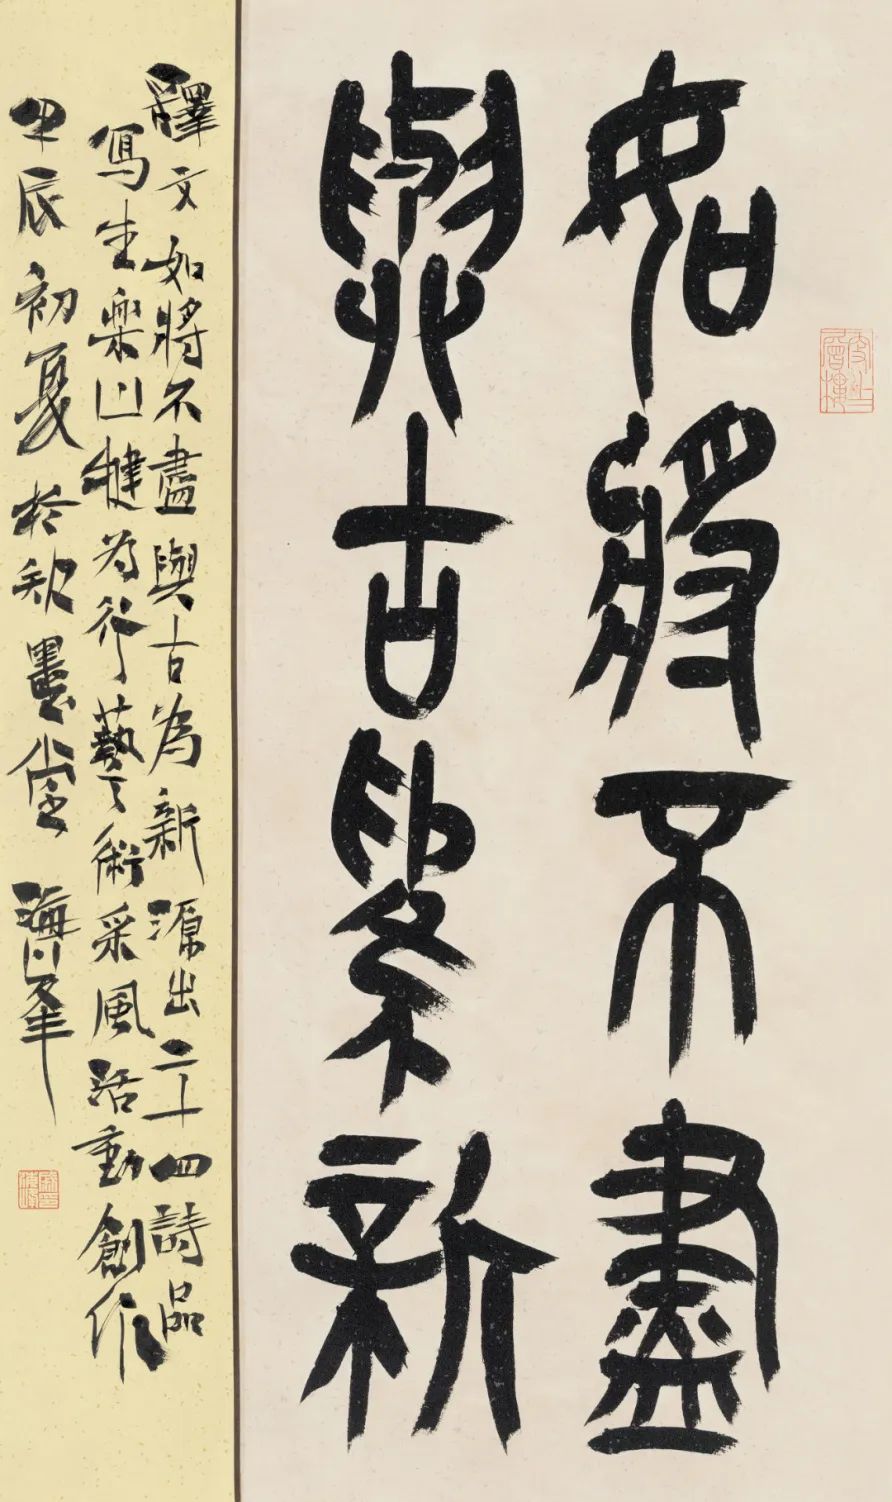 更上層樓
如將不盡
與古為新
釋文如將不盡與古為新源出二十四詩品
寫生樂山犍為行藝術采風活動創作
甲辰初夏於墨堂海峯